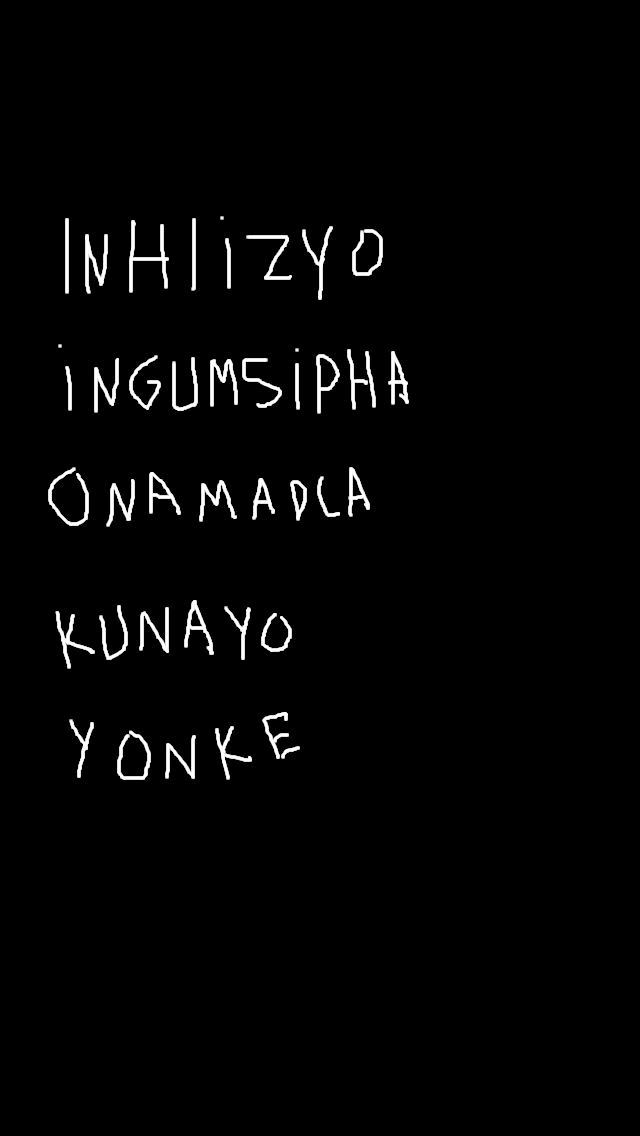 INHliZYO
iNGUMSiPHA
ONAMADLA
KUNAYO
YONKE